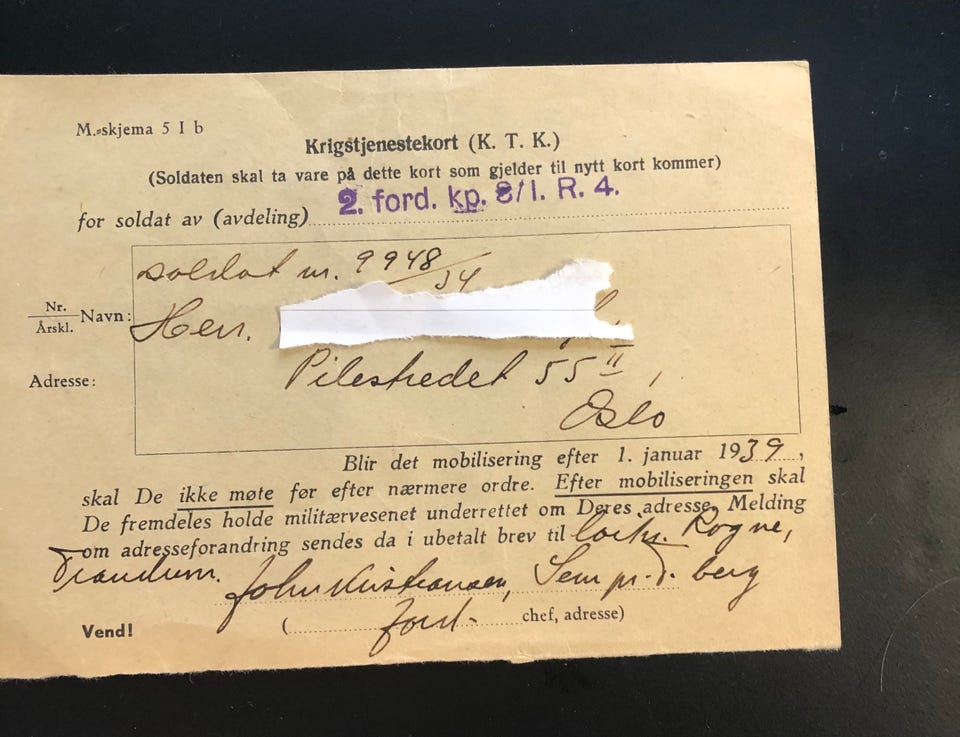 M.-skjema 5 I b
Krigstjenestekort (K. T. K.)
(Soldaten skal ta vare på dette kort som gjelder til nytt kort kommer)
for soldat av (avdeling) 2. ford. kp. 8/I. R. 4.
soldat nr. 9948/34
Nr.
Årskl.
Navn:
Herr.
Adresse: Pilestredet 55 II,
Oslo
Blir det mobilisering efter 1. januar 1939,
skal De ikke møte før efter nærmere ordre. Efter mobiliseringen skal
De fremdeles holde militærvesenet underrettet om Deres adresse. Melding
om adresseforandring sendes da i ubetalt brev til Rogne,
Trandum.
John Kristiansen, Sem pr. berg
Vend! (ford. chef, adresse)